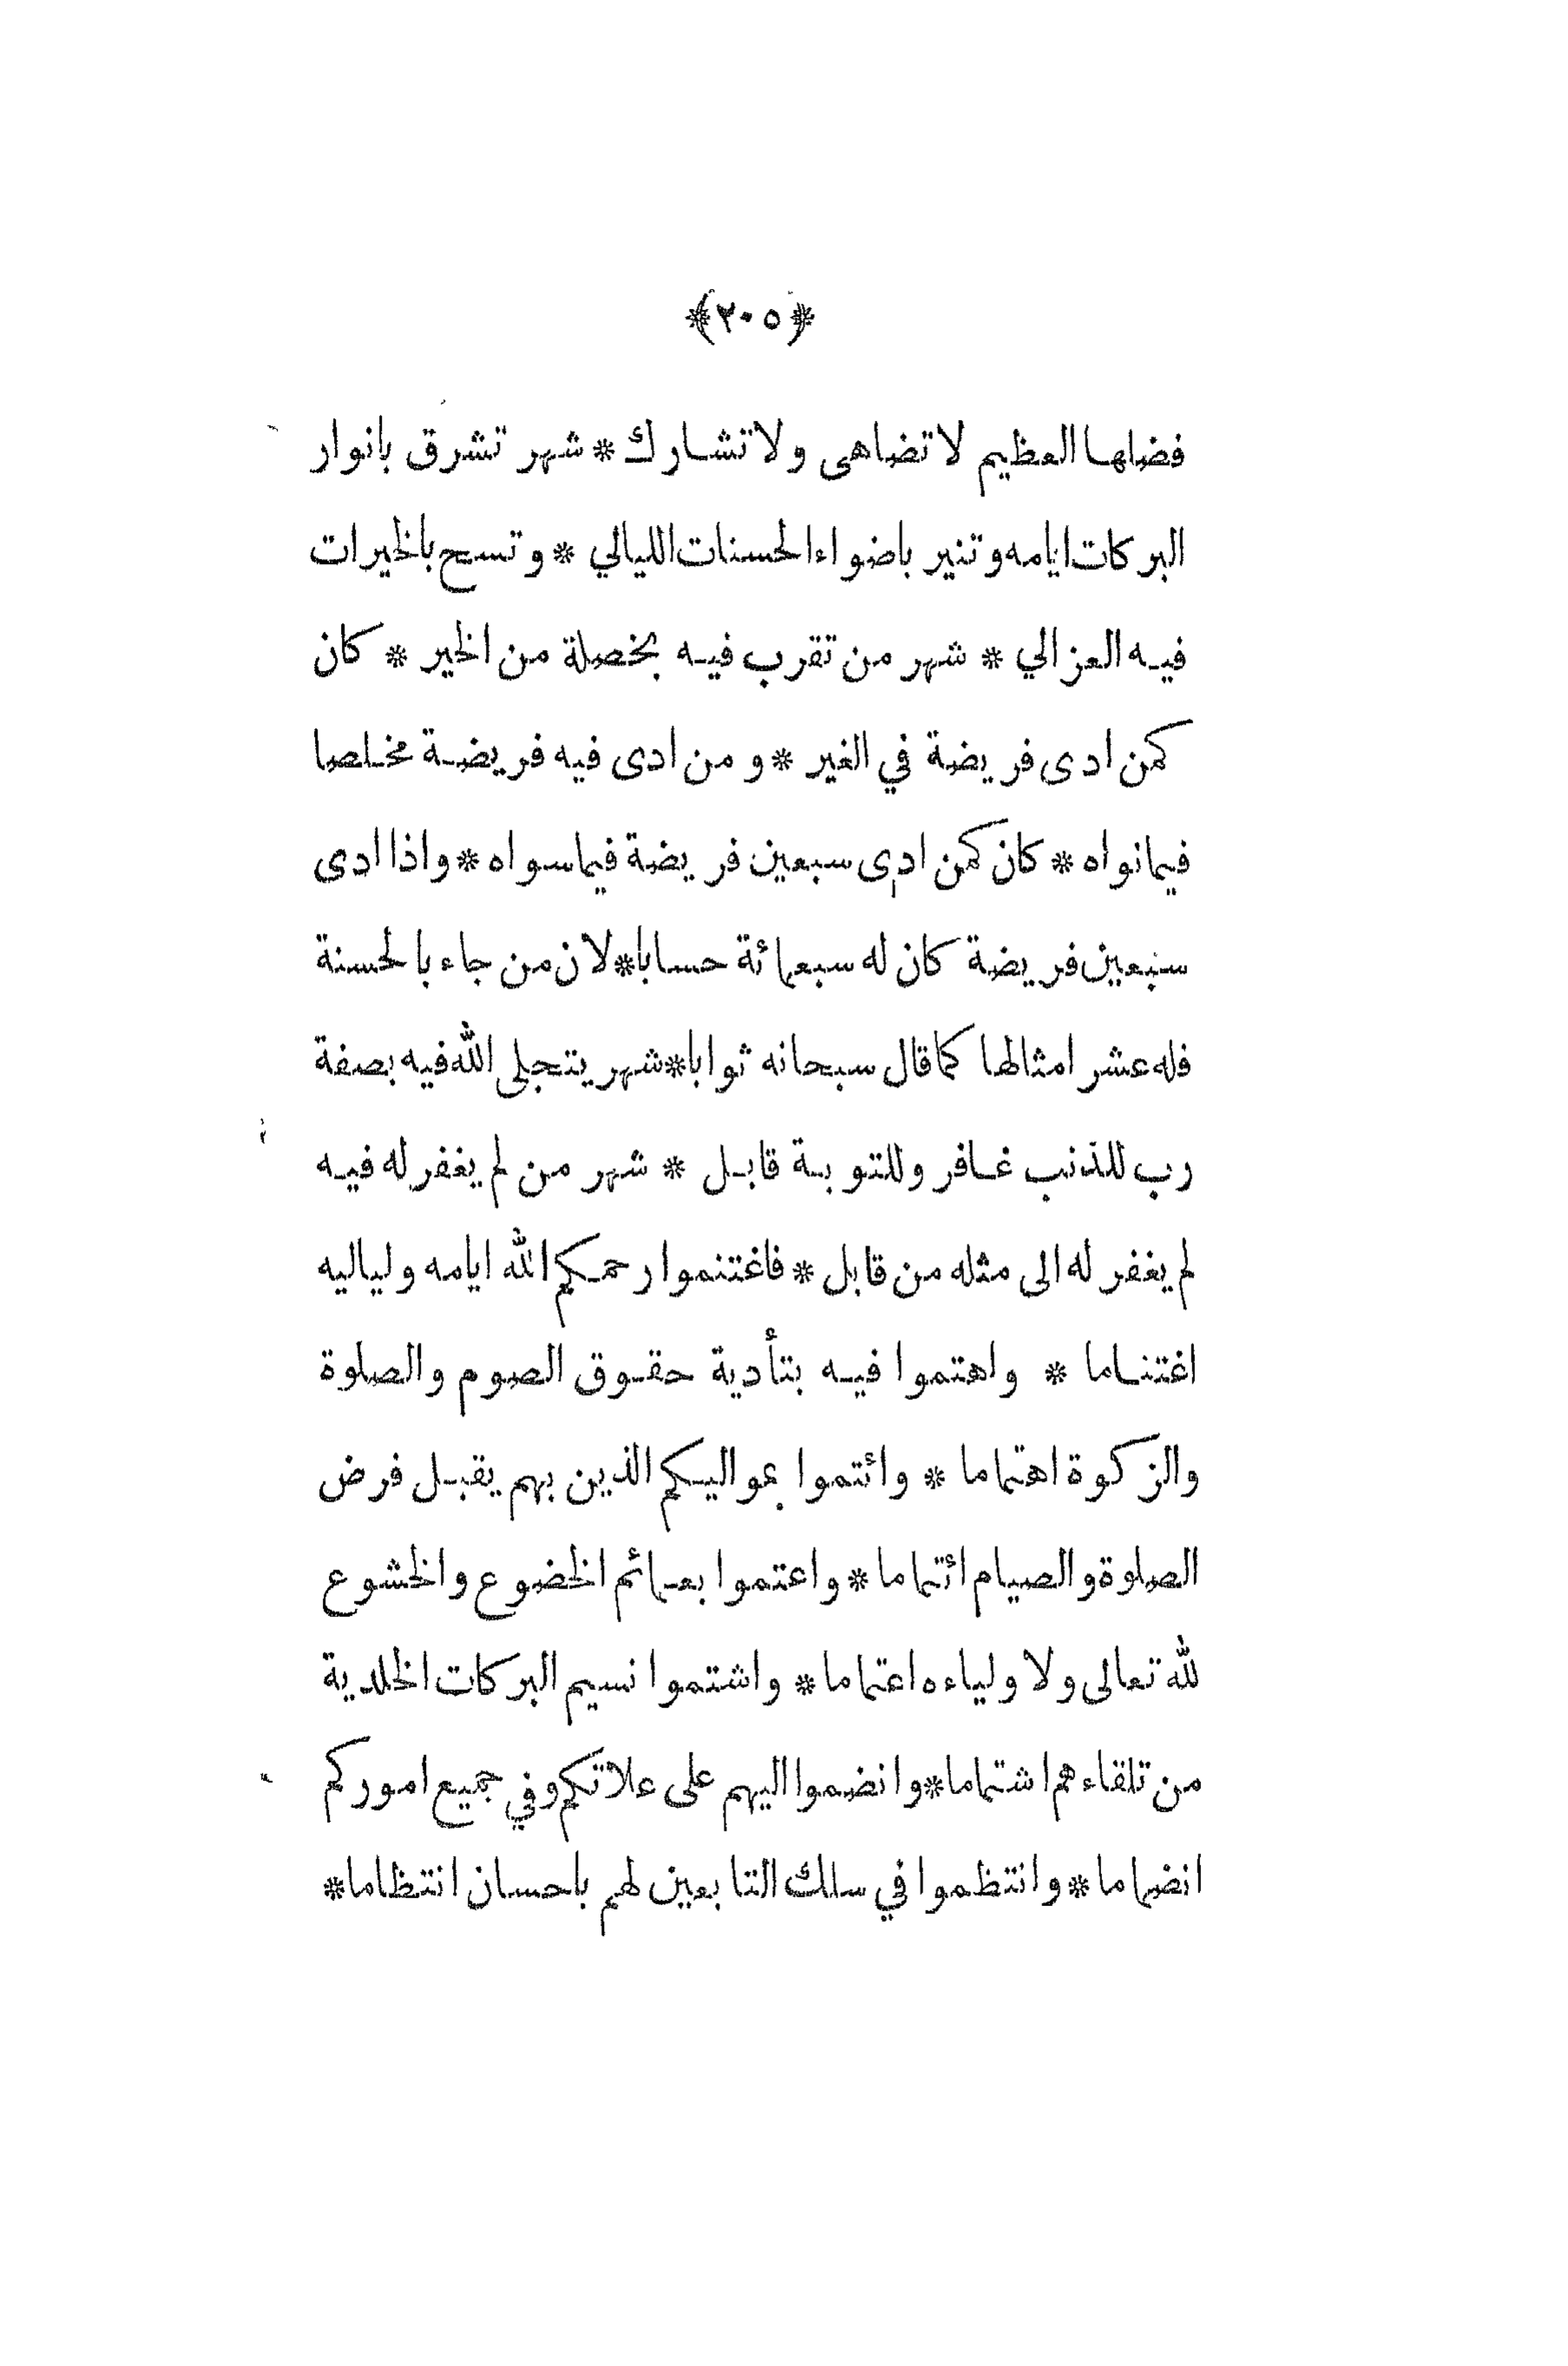 ﴿٢٠٥﴾
فضلها العظيم لا تضاهى ولا تشارك * شهر تشرق بانوار
البركات ايامه وتنير باضواء الحسنات الليالي * وتسح بالخيرات
فيه العزالي * شهر من تقرب فيه بخصلة من الخير * كان
كمن ادى فريضة في الغير * و من ادى فيه فريضة مخلصا
فيما نواه * كان كمن ادى سبعين فريضة فيما سواه * واذا ادى
سبعين فريضة كان له سبعمائة حسابا * لان من جاء بالحسنة
فله عشر امثالها كما قال سبحانه ثوابا * شهر يتجلى الله فيه بصفة
رب للذنب غافر وللتوبة قابل * شهر من لم يغفر له فيه
لم يغفر له الى مثله من قابل * فاغتنموا رحمكم الله ايامه ولياليه
اغتناما * واهتموا فيه بتأدية حقوق الصوم والصلوة
والزكوة اهتماما * وائتموا بمواليكم الذين بهم يقبل فرض
الصلوة والصيام ائتماما * واعتموا بعمائم الخضوع والخشوع
لله تعالى ولاولياءه اعتماما * واشتموا نسيم البركات الخلدية
من تلقاءهم اشتماما * وانضموا اليهم على علاتكم وفي جميع اموركم
انضماما * وانتظموا في سلك التابعين لهم باحسان انتظاما *